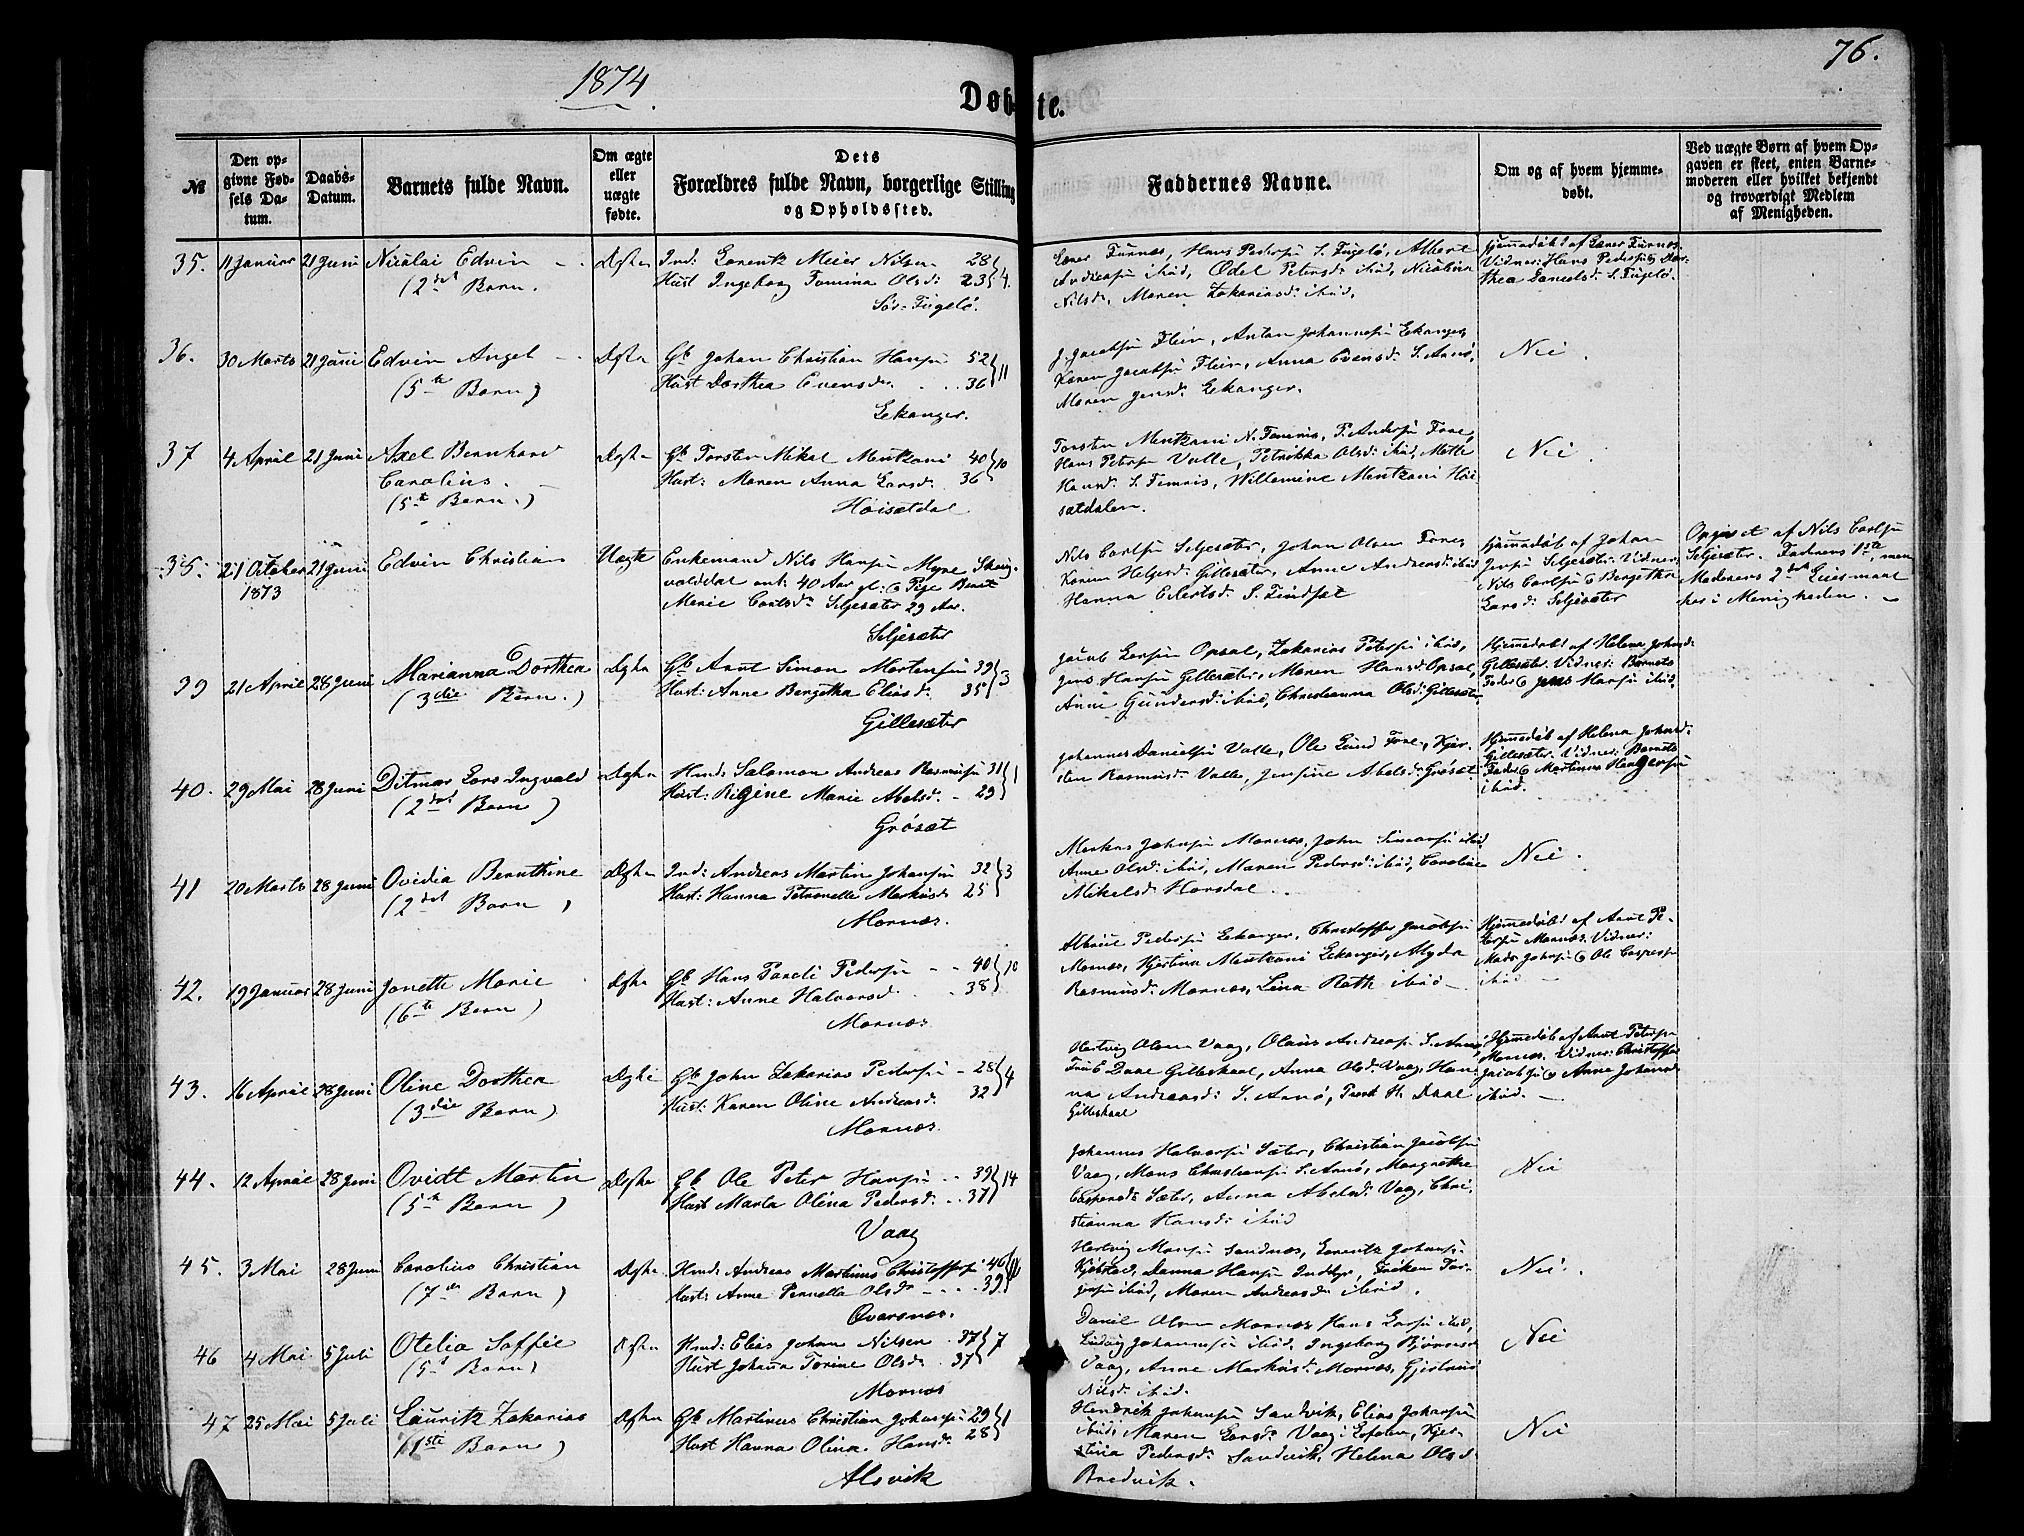 1874
76.
Døbte.
№
Den opgivne Fødsels Datum.
Daabs-Datum.
Barnets fulde Navn.
Om ægte eller uægte fødte.
Dets Forældres fulde Navn, borgerlige Stilling og Opholdssted.
Faddernes Navne.
Om og af hvem hjemmedøbt.
Ved uægte Børn af hvem Opgaven er skeet, enten Barnemoderen eller hvilket bekjendt og troværdigt Medlem af Menigheden.
35. 11 Januar 21 Juni Nicolai Edvin
(2det Barn.
Ægte
Ind: Lorentz Meier Nilsen 28
Hust Ingeborg Tomina Olsd: 23 } 4.
Sør-Fugelø.
Furnæs, Hans Pedersen S. Fugelø, Albert
Andreasen ibid, Odel Petersd: ibid, Nicoline
Nilsd., Maren Zakariasd: ibid.
Hjemmedøbt af Furnæs.
Vidner: Hans Pedersen & Dorthea Danielsd: S. Fugelø.
36. 30 Marts 21 Juni Edvin Angel
(5te Barn)
Ægte
Gb Johan Christian Hansen 52
Hust Dorthea Evensdr. 36 } 11
Ekanger.
J. Jacobsen Flein, Anton Johannesen Ekanger,
Karen Jacobsen Flein, Anna Evensd: S. Arnø,
Maren Jensd: Ekanger.
Nei.
37 4 April 21 Juni Axel Bernhard
Carolius.
(5te Barn.)
Ægte
Gb Torsten Mikal Mentzoni 40
Hust: Maren Anna Larsd: 36 } 10
Høisætdal
Torsten Mentzoni N. P. Andersen Fore,
Hans Petersen Valle, Petrikka Olsd: ibid, Mette
Hansd: S. Willemine Mentzoni Høisætdalen.
Nei.
35. 21 October 1873 21 Juni Edvin Christian
Uægte
Enkemand Nils Hansen Myre
ant: 40 Aar gl: & Pige Berit
Marie Carlsd: Seljesæter 29 Aar.
Seljesæter
Nils Carlsen Seljesæter, Johan Olsen Fore,
Karen Helgesd: Gillesæter, Anne Andreasd: ibid
Hanna Eilertsd: S.
Hjemmedøbt af Johan
Jensen Seljesæter. Vidner:
Nils Carlsen & Bergitha
Larsd: Seljesæter
Opgivet af Nils Carlsen
Seljesæter. Faderens 1ste, men
Moderens 2det Leiermaal
her i Menigheden.
39 21 April 28 Juni Marianna Dorthea
(3die Barn.)
Ægte
Gb Arnt Simon Mortensen 39
Hust: Anne Bergitha Eliasd: 35 } 3
Gillesæter
Jacob Larsen Opsal, Zakarias Petersen ibid,
Jens Hansen Gillesæter, Maren Hansd: Opsal,
Anne Gundersd: ibid, Christianna Olsd: Gillesæter.
Hjemmedøbt af Helena Johnsd:
Gillesæter. Vidner: Barnets
Fader & Jens Hansen ibid.
40. 29 Mai 28 Juni Ditmar Lars Ingvald
(2det Barn)
Ægte
Hmd: Salomon Andreas Rasmusen 31
Hust: Rigine Marie Abelsd. 29 } 1
Grøsæt
Johannes Danielsen Valle, Ole Lund Fore, Kjersten Rasmusd: Valle, Jensine Abelsd: Grøsæt
Hjemmedøbt af Helena Johnsd:
Gillesæter. Vidner: Barnets
Fader & Martinus
ibid.
41 20 Marts 28 Juni Ovidia Bernthine
(2det Barn)
Ægte
Ind: Andreas Martin Johansen 32
Hust: Hanna Petronelle Markusd: 25 } 3
Mornæs.
Markus Johnsen Mornæs, John Simonsen ibid
Anne Olsd: ibid, Maren Pedersd: ibid, Caroline
Mikelsd: Horsdal
Nei.
42. 19 Januar 28 Juni Janette Marie
(6te Barn)
Ægte
Gb Hans Pareli Pedersen 40
Hust: Anne Halvorsd: 38 } 10
Mornæs
Pedersen Ekanger, Christoffer Jacobsen
Mornæs, Kjerstina Mentzoni Ekanger, Alyda
Rasmusd: Mornæs, Lina Rath ibid
Hjemmedøbt af Arnt Petersen Mornæs. Vidner:
Mads Johnsen & Ole Caspersen
ibid
43. 16 April 28 Juni Oline Dorthea
(3die Barn)
Ægte
Gb John Zakarias Pedersen 28
Hust: Karen Oline Andreasd: 32 } 4
Mornæs
Hartvig Olsen Vaag, Olaus Andreasen S. Arnø,
Daae Gilleskaal, Anna Olsd: Vaag, Hanna Andreasd: S. Arnø, H. Daae
Gilleskaal
Hjemmedøbt af Arnt Petersen
Mornæs. Vidner: Christoffer
Jacobsen & Anna Johansd:
ibid.
44. 12 April 28 Juni Ovidt Martin
(5te Barn)
Ægte
Gb Ole Peter Hansen 39
Hust Marta Olina Pedersd: 37 } 14
Vaag
Johannes Halvorsen Sæter, Christian Jacobsen
Vaag, Mons Christiansen S. Arnø, Margrethe
Caspersd: Sæter, Anna Abelsd: Vaag, Christianna Hansd: ibid
Nei
45. 3 Mai 28 Juni Carolius Christian
(7de Barn)
Ægte
Hmd: Andreas Martinus Christoffersen 46
Hust: Anne Pernella Olsdr 39
Qvarsnæs.
Hartvig Monsen Sandnæs, Lorentz Johansen
Kjøbstad, Danna Hansen Indbyr,
ibid, Maren Andreasd: ibid.
Nei.
46 4 Mai 5 Juli Otelia Soffie
(5te Barn)
Ægte
Hmd: Elias Johan Nilsen 37
Hust Johanna Torine Olsd: 37 } 7
Mornæs
Daniel Olsen Mornæs, Hans Larsen ibid,
Ludvig Johannesen ibid, Ingeborg
Vaag, Anne Markusd: Mornæs, Gjertrud
Nilsd: ibid.
Nei
47 25 Mai 5 Juli Lauritz Zakarias
(1ste Barn)
Ægte
Gb: Martinus Christian Johansen 29
Hust Hanna Olina Hansd: 28 } 1
Alsvik
Hendrik Johansen Sandvik, Elias Johansen
ibid, Maren Larsd: Vaag i Kjerstina Pedersd: Sandvik, Helena Olsd:
Bredvik.
Nei